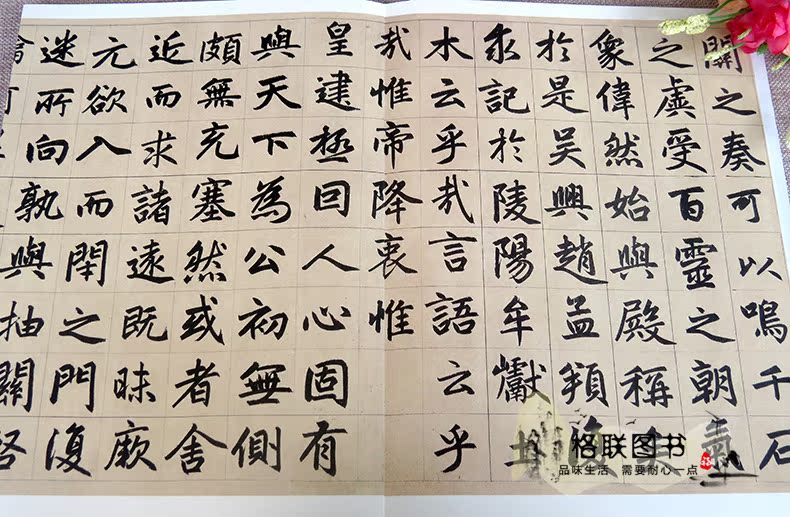 之奏可以鳴千石
之虡受百靈之朝氣
象偉然始與殿稱
於是吳興趙孟頫復
求記於陵陽牟巘土
木云乎哉言語云乎
哉惟帝降衷惟
皇建極囙人心固有
與天下為公初無側
頗無充塞然或者舍
近而求諸遠既昧厥
元欲入而閈之門復
迷所向孰與抽關
格联图书
品味生活，需要耐心一点